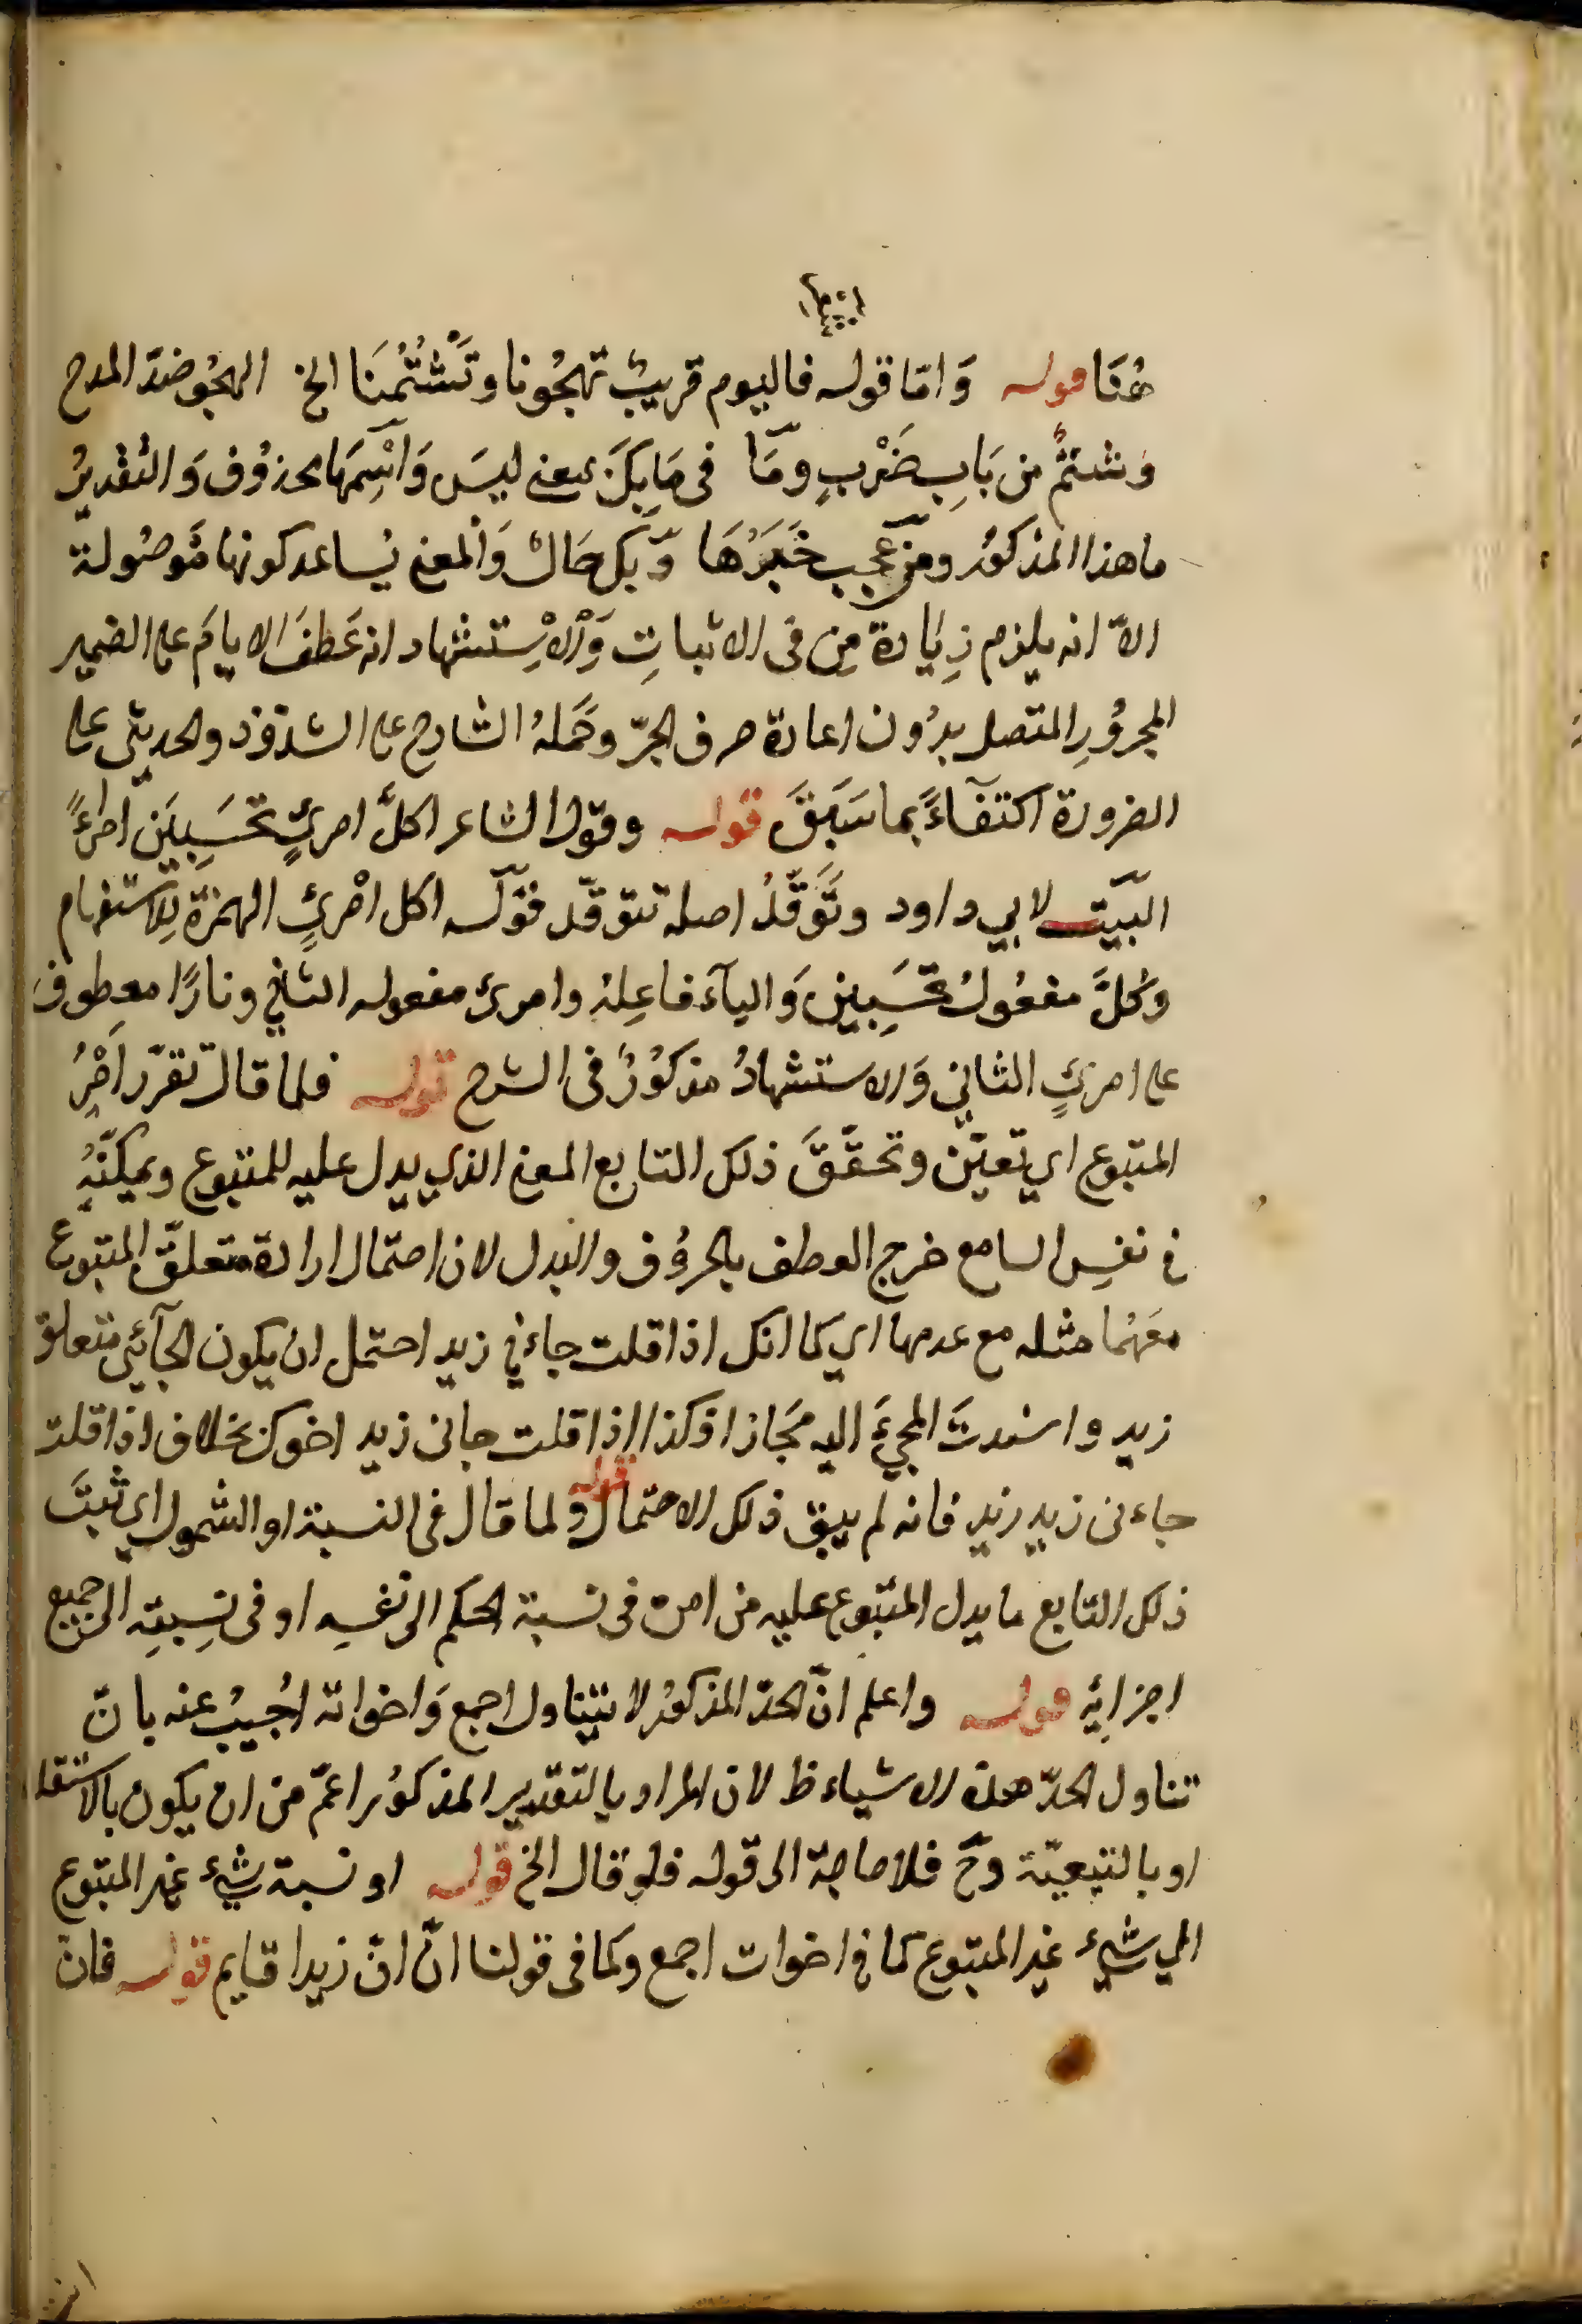 هُنَا قوله وَامّا قوله فاليوم قريبُ تهجُونا وتَشْتُمُنَا الخ الهجُو ضدّ المدح
وشتمٌ من بَابِ ضَرْبٍ ومَا فى مَا بِكَ بمعنى ليسَ وَاسْمَهَا محذوُف وَالتقديرُ
ما هذا المذكوُر ومن عجب خَبَرُهَا وَبكل حَال وَالمعنى يُساعد كونها مَوصُولة
الاّ انه يلزم زِيَادة مِن فى الاثباتِ وَالاِستشهاد انه عَطفَ الايامَ على الضمير
المجروُرِ المتصل بدُون اعادة حرف الجرّ وحَمَلهُ الشارح على الشذوذ والحديثى على
الضرورة اكتفآءً بما سَبَقَ قوله وقول الشاعر اكلَّ امرئٍ تحسَبِينَ امرءًا
البَيّت لابي داود وتَوَقَّدُ اصله تتوقّد فقوله اكل امْرئٍ الهمزة لِلاستفهام
وكُلَّ مفعُولُ تحسَبِين وَاليآء فاعِلهُ وامرئ مفعوله الثاني ونارًا معطوف
على امرئٍ الثاني وَالاستشهادُ مذكوُرٌ فى الشرح قوله فلما قال تقرّر اَمْرُ
المتبوع اي تعيّن وتحقّقَ ذلك التابع المعنى الذي يدل عليه للمتبوع ويمكّنهُ
في نفسِ السامع خرج العطف بالحروُف والبدل لان احتمال ارادة متعلقّ المتبوع
معَهُما مثله مع عدمها اي كما انك اذا قلت جاءني زيد احتمل ان يكون الجآئِي متعلق
زيد واسندتَ المجئَ اليه مجَازا فكذا اذا قلت جانى زيد اخوك بخلاف اذا قلت
جاءنى زيد زيد فانه لم يبق ذلك الاحتمال قوله ولما قال فى النسبة او الشمول اي ثبتَ
ذلك التابع ما يدل المتبوع عليه من امره فى نسبة الحكم الى نفسِه او فى نِسبتِه الى جميع
اجزايِه قوله واعلم انّ الحدّ المذكوُر لا يتناول اجمع وَاخواته اُجيبُ عنه بانّ
تناول الحدّ هذه الاشياء ظ لان المراد بالتقدير المذكوُر اعمّ من ان يكون بالاستقلا
او بالتبعيّة وحَ فلا حاجة الى قوله فلو قال الخ قوله او نسبة شيء غير المتبوع
الي شيء غير المتبوع كما في اخوات اجمع وكما فى قولنا انّ انّ زيدا قايم قوله فان